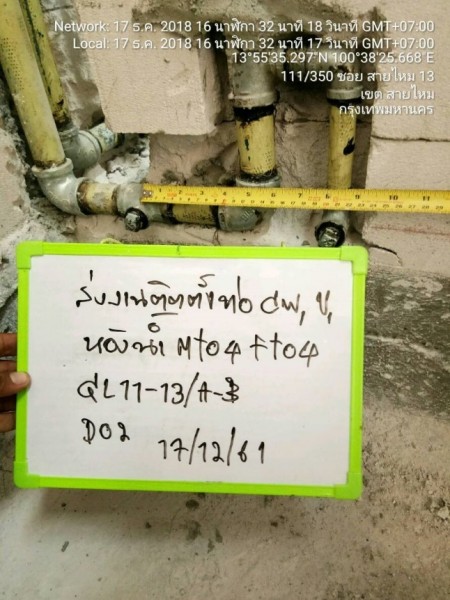 Network: 17 ธ.ค. 2018 16 นาฬิกา 32 นาที 18 วินาที GMT+07:00
Local: 17 ธ.ค. 2018 16 นาฬิกา 32 นาที 17 วินาที GMT+07:00
13°55'35.297"N 100°38'25.668"E
111/350 ซอย สายไหม 13
เขต สายไหม
กรุงเทพมหานคร
1 2 3 4 5 6 7 8 9 10 11
ส่งงานติดตั้งท่อ CW, V,
ห้องน้ำ M104 F104
GL11-13/A-B
D02
17/12/61